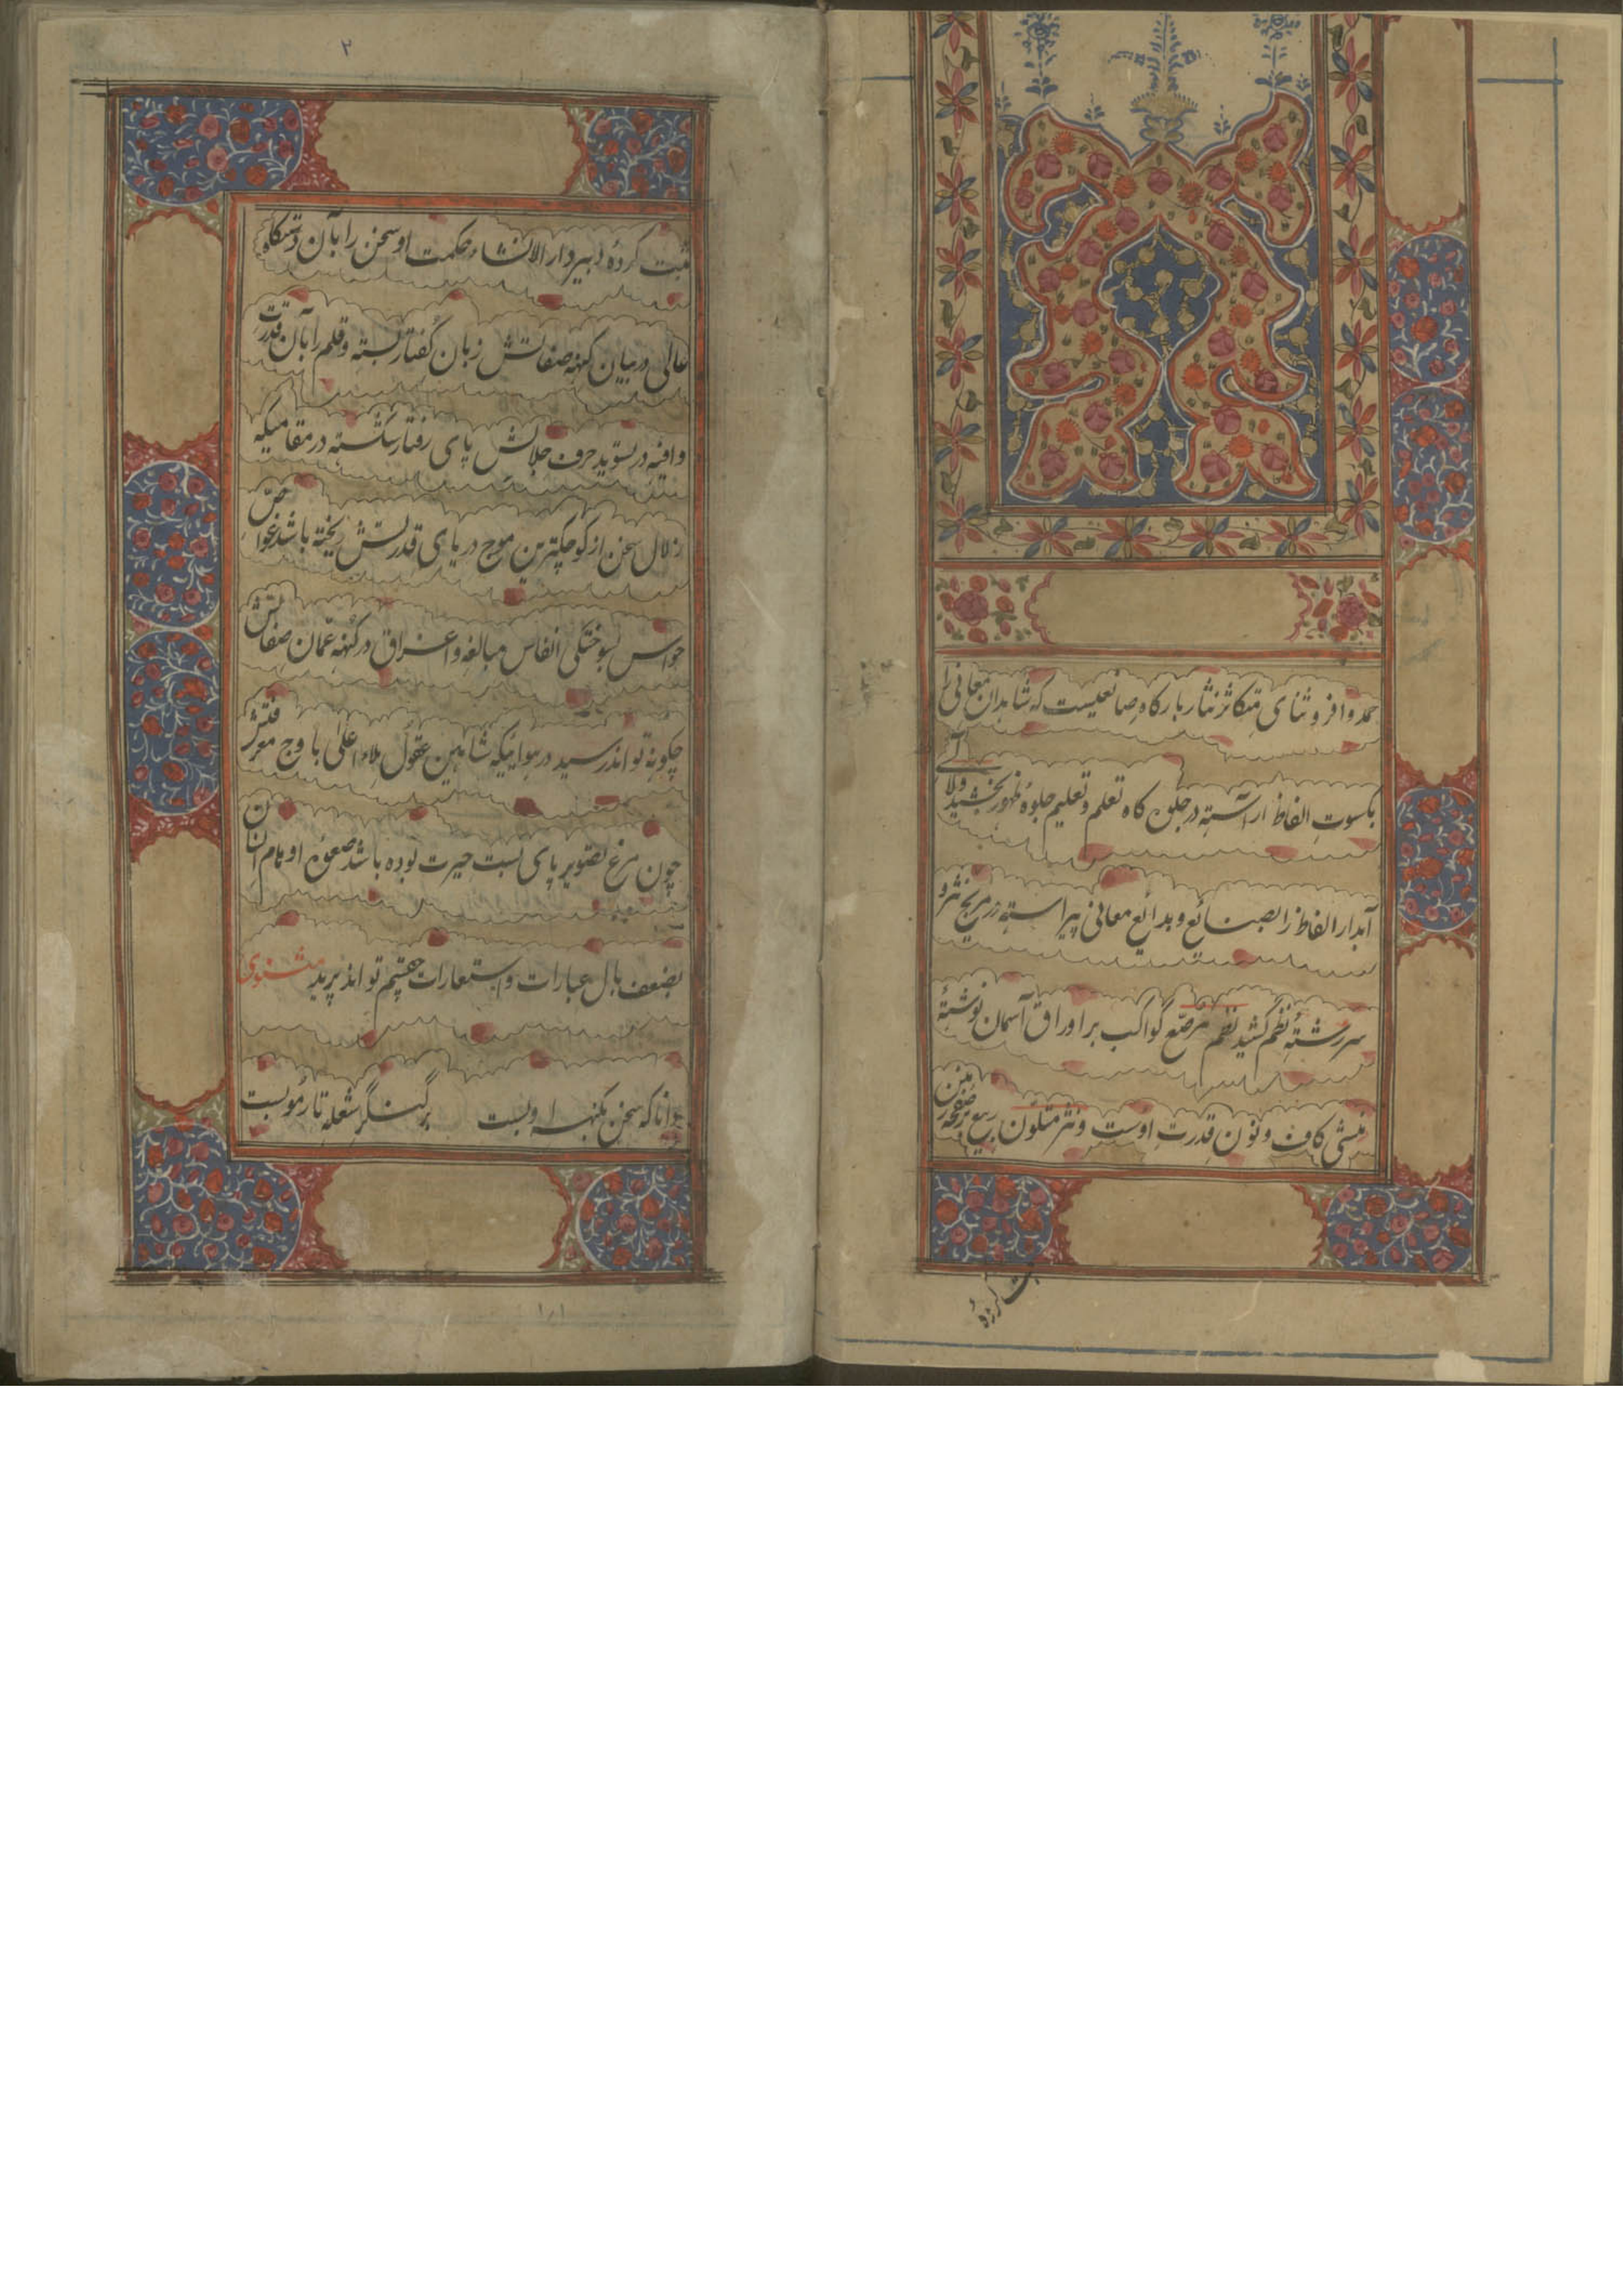 حمد وافر و ثنای متکاثر نثار بارگاه صانعیست که شاهدان معانی را
بکسوت الفاظ آراسته در جلوه گاه تعلم و تعلیم جلوهٔ ظهور بخشید و لآلی
آبدار الفاظ را بصنائع و بدائع معانی پیراسته در نثر و
سررشتهٔ نظم کشید نظم مرصّع کواکب بر اوراق آسمان نوشتهٔ
منشی کاف و نون قدرت اوست و نثر متلوّن ربیع بر صفحهٔ زمین
ثبت کردهٔ
۲
ثبت کردهٔ دبیر دار الانشاء حکمت او سخن را بآن دستگاه
عالی در بیان کنه صفاتش زبان گفتار بسته و قلم را بآن قدرت
وافیه در تسوید حرف جلالش پای رفتار شکسته در مقامیکه
زلال سخن از کوچکترین موج دریای قدرتش ریخته باشد غوّاص
حواس بسوختگی انفاس مبالغه و اغراق در کُنه عمّان صفاتش
چگونه تواند رسید در هوائیکه شاهین عقول ملاء اعلی باوج معرفتش
چون مرغ تصویر پای بست حیرت بوده باشد صعوهٔ اوهام انسان
بضعف بال عبارات و استعارات چشم تواند پرید مثنوی
دانا که سخن بکنه او بست بر کنگر شعله تار مو بست